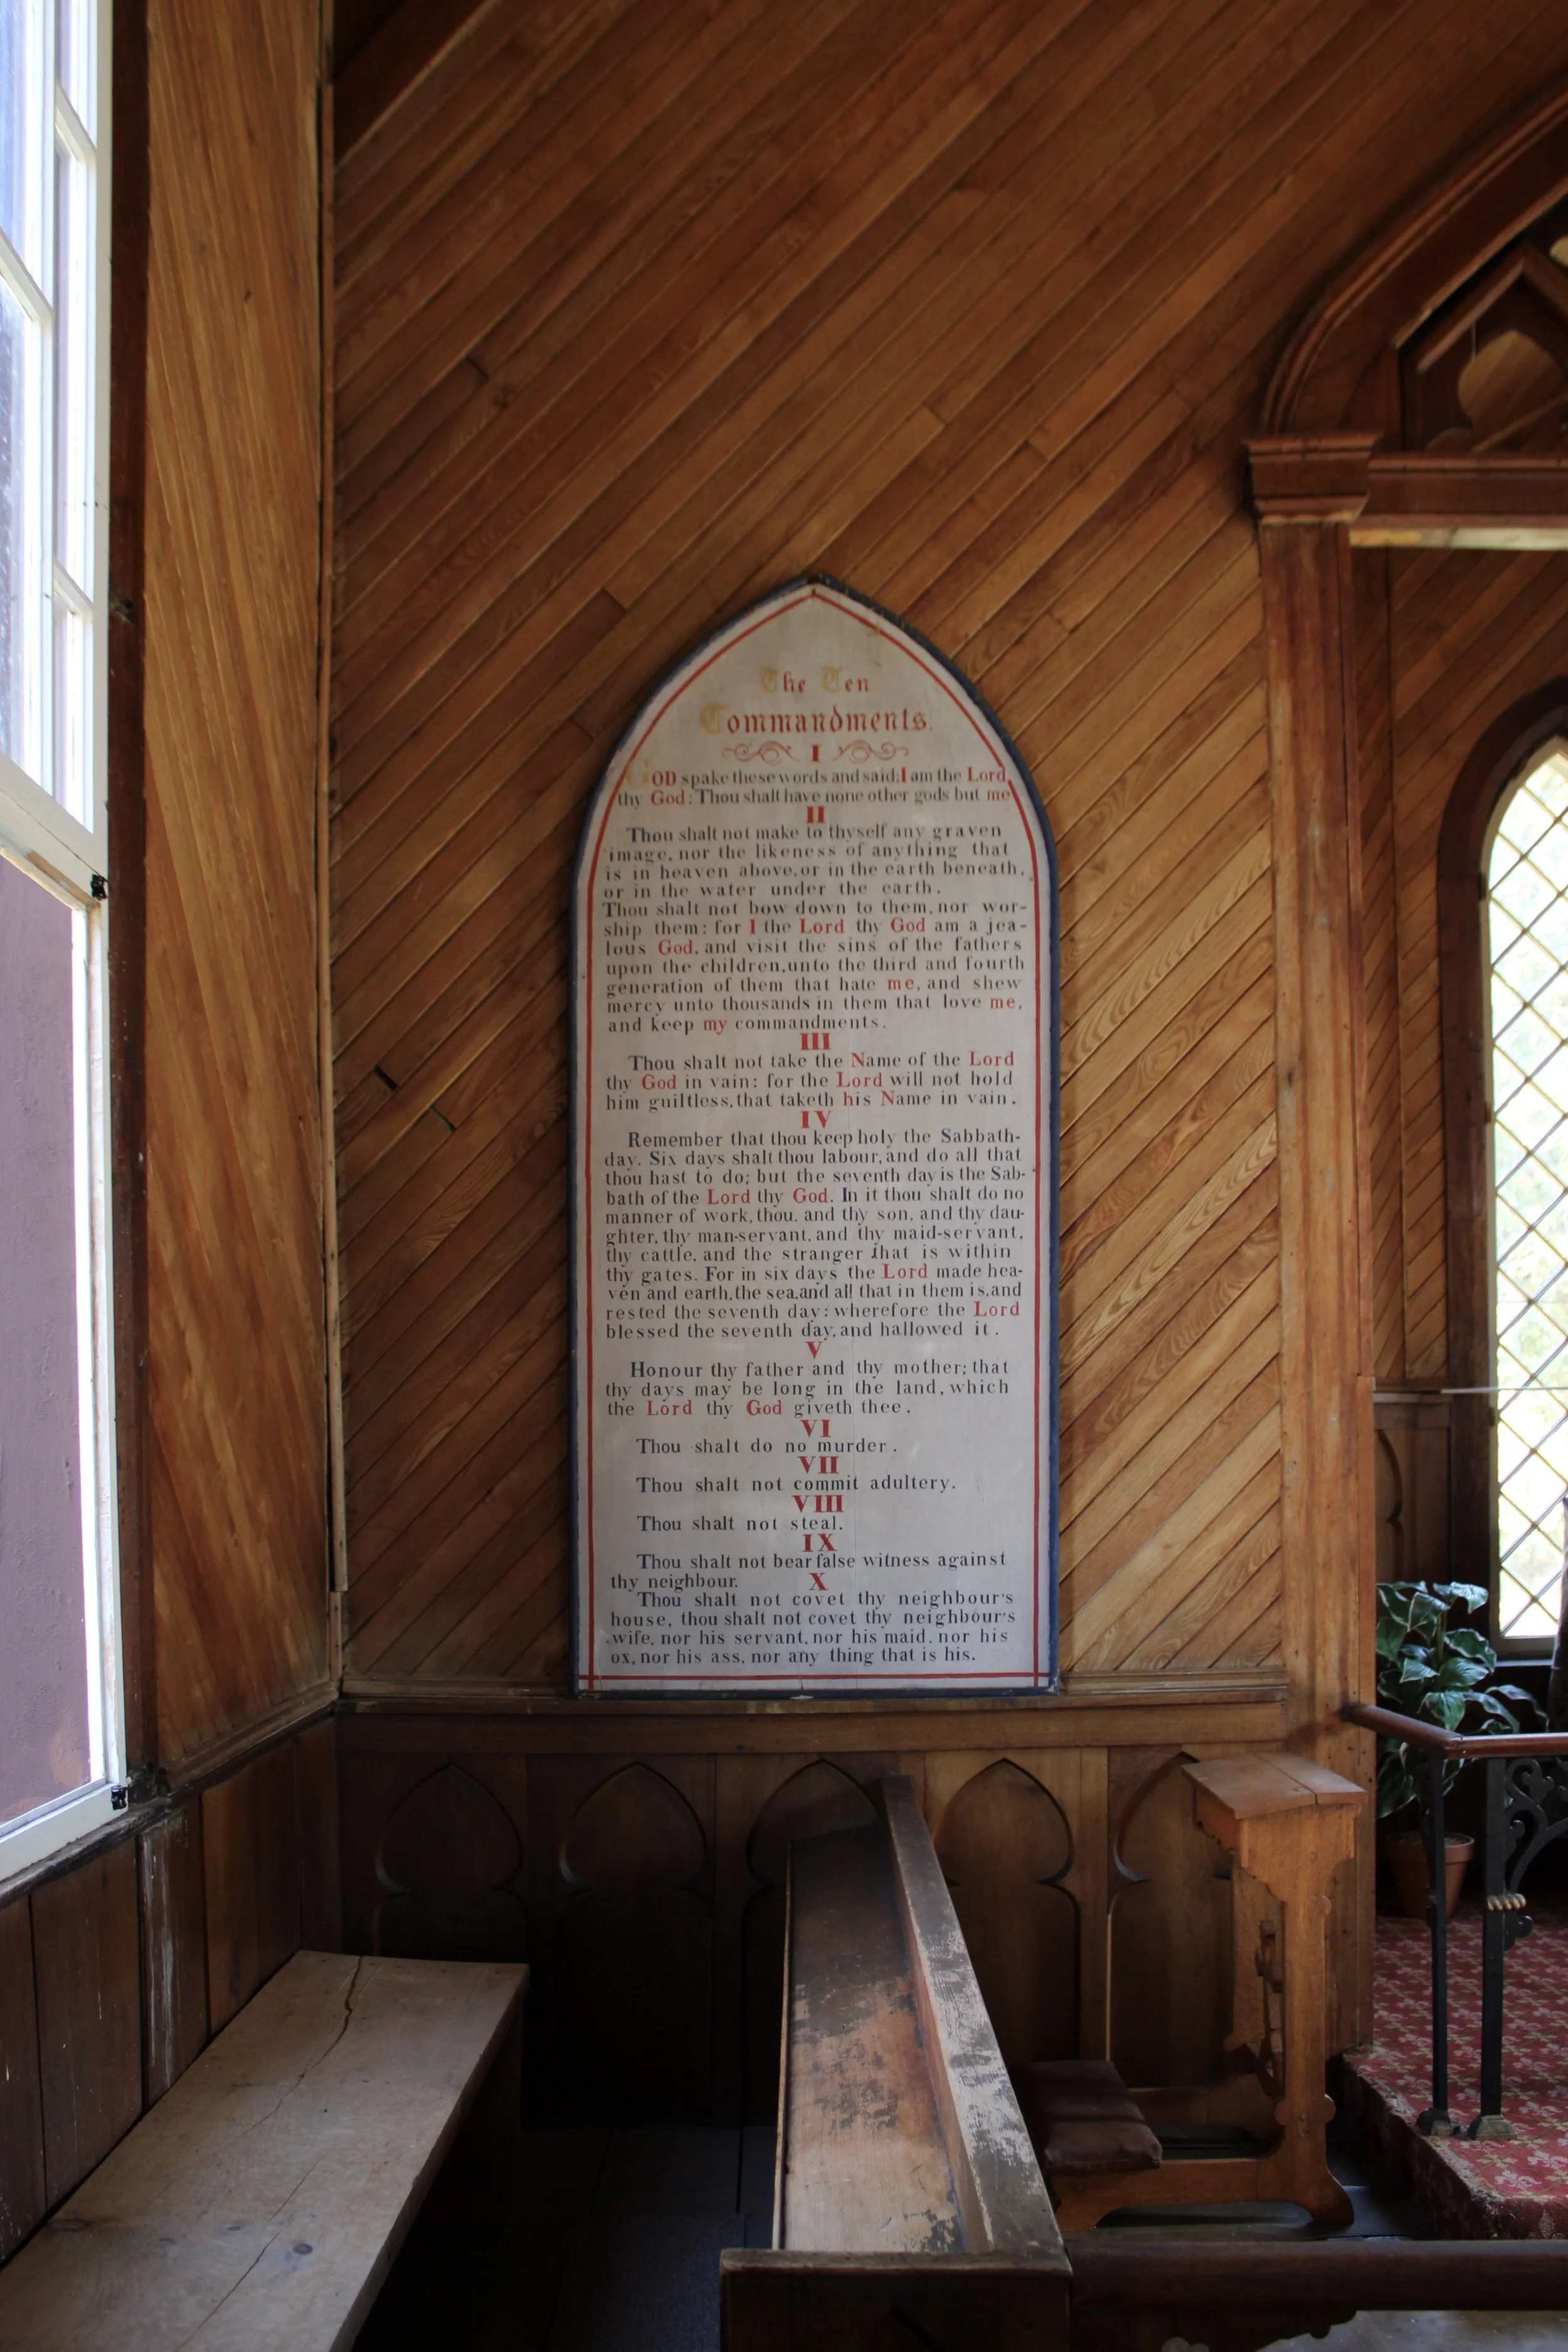 The Ten
Commandments.
I
GOD spake these words and said: I am the Lord
thy God: Thou shalt have none other gods but me
II
Thou shalt not make to thyself any graven
image, nor the likeness of anything that
is in heaven above, or in the earth beneath,
or in the water under the earth.
Thou shalt not bow down to them, nor wor-
ship them: for I the Lord thy God am a jea-
lous God, and visit the sins of the fathers
upon the children, unto the third and fourth
generation of them that hate me, and shew
mercy unto thousands in them that love me,
and keep my commandments.
III
Thou shalt not take the Name of the Lord
thy God in vain: for the Lord will not hold
him guiltless, that taketh his Name in vain.
IV
Remember that thou keep holy the Sabbath-
day. Six days shalt thou labour, and do all that
thou hast to do; but the seventh day is the Sab-
bath of the Lord thy God. In it thou shalt do no
manner of work, thou, and thy son, and thy dau-
ghter, thy man-servant, and thy maid-servant,
thy cattle, and the stranger that is within
thy gates. For in six days the Lord made hea-
ven and earth, the sea, and all that in them is, and
rested the seventh day: wherefore the Lord
blessed the seventh day, and hallowed it.
V
Honour thy father and thy mother; that
thy days may be long in the land, which
the Lord thy God giveth thee.
VI
Thou shalt do no murder.
VII
Thou shalt not commit adultery.
VIII
Thou shalt not steal.
IX
Thou shalt not bear false witness against
thy neighbour.
X
Thou shalt not covet thy neighbour's
house, thou shalt not covet thy neighbour's
wife, nor his servant, nor his maid, nor his
ox, nor his ass, nor any thing that is his.